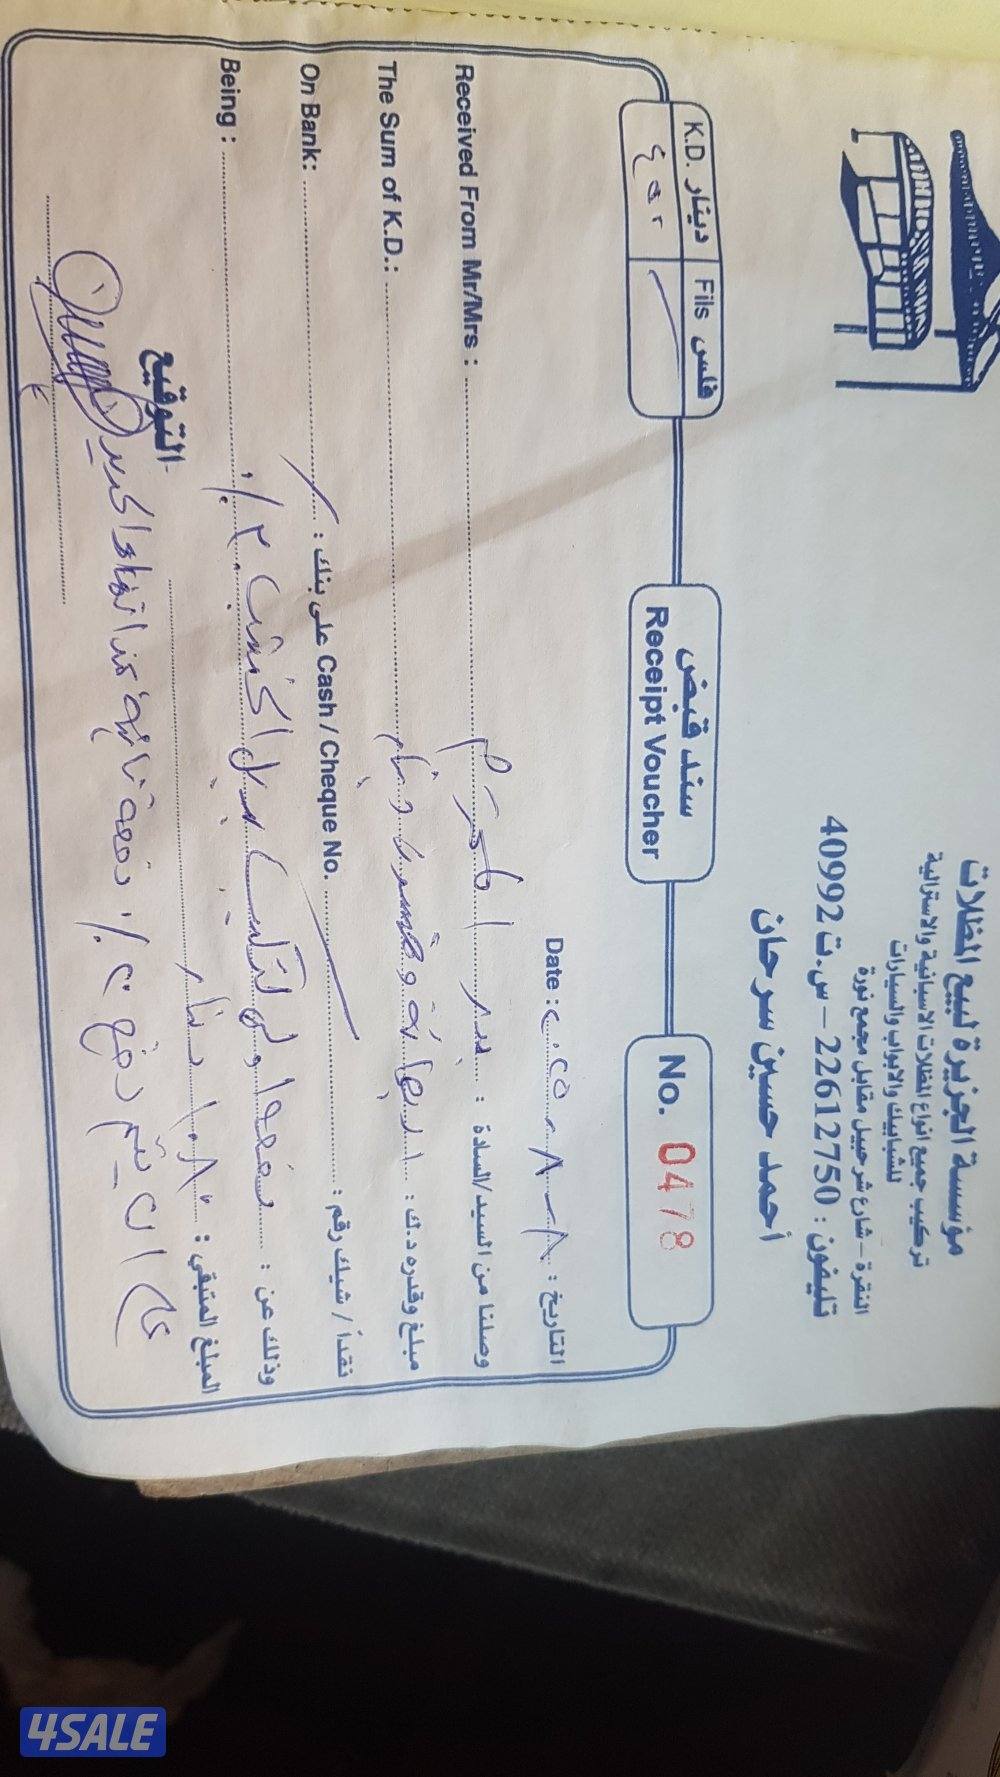 مؤسسة الجزيرة لبيع المظلات
تركيب جميع انواع المظلات الاسبانية والاسترالية
للشبابيك والابواب والسيارات
النقرة - شارع شرحبيل مقابل مجمع نورة
تليفون : 22612750 - س.ت 40992
أحمد حسين سرحان
K.D. دينار
Fils فلس
٤٥٢
سند قبض
Receipt Voucher
No. 0478
Date : ٢٠٢٥-٨-٨ : التاريخ
Received From Mr/Mrs : : وصلنا من السيد/السادة
The Sum of K.D.: اربعمائة و دينار : مبلغ وقدره د.ك
On Bank: : على بنك Cash / Cheque No. : نقداً / شيك رقم
Being : دفعه اولى : وذلك عن
دينار : المبلغ المتبقي
على ان يتم دفع دفعة ثانية عند انتهاء
التوقيع
4SALE